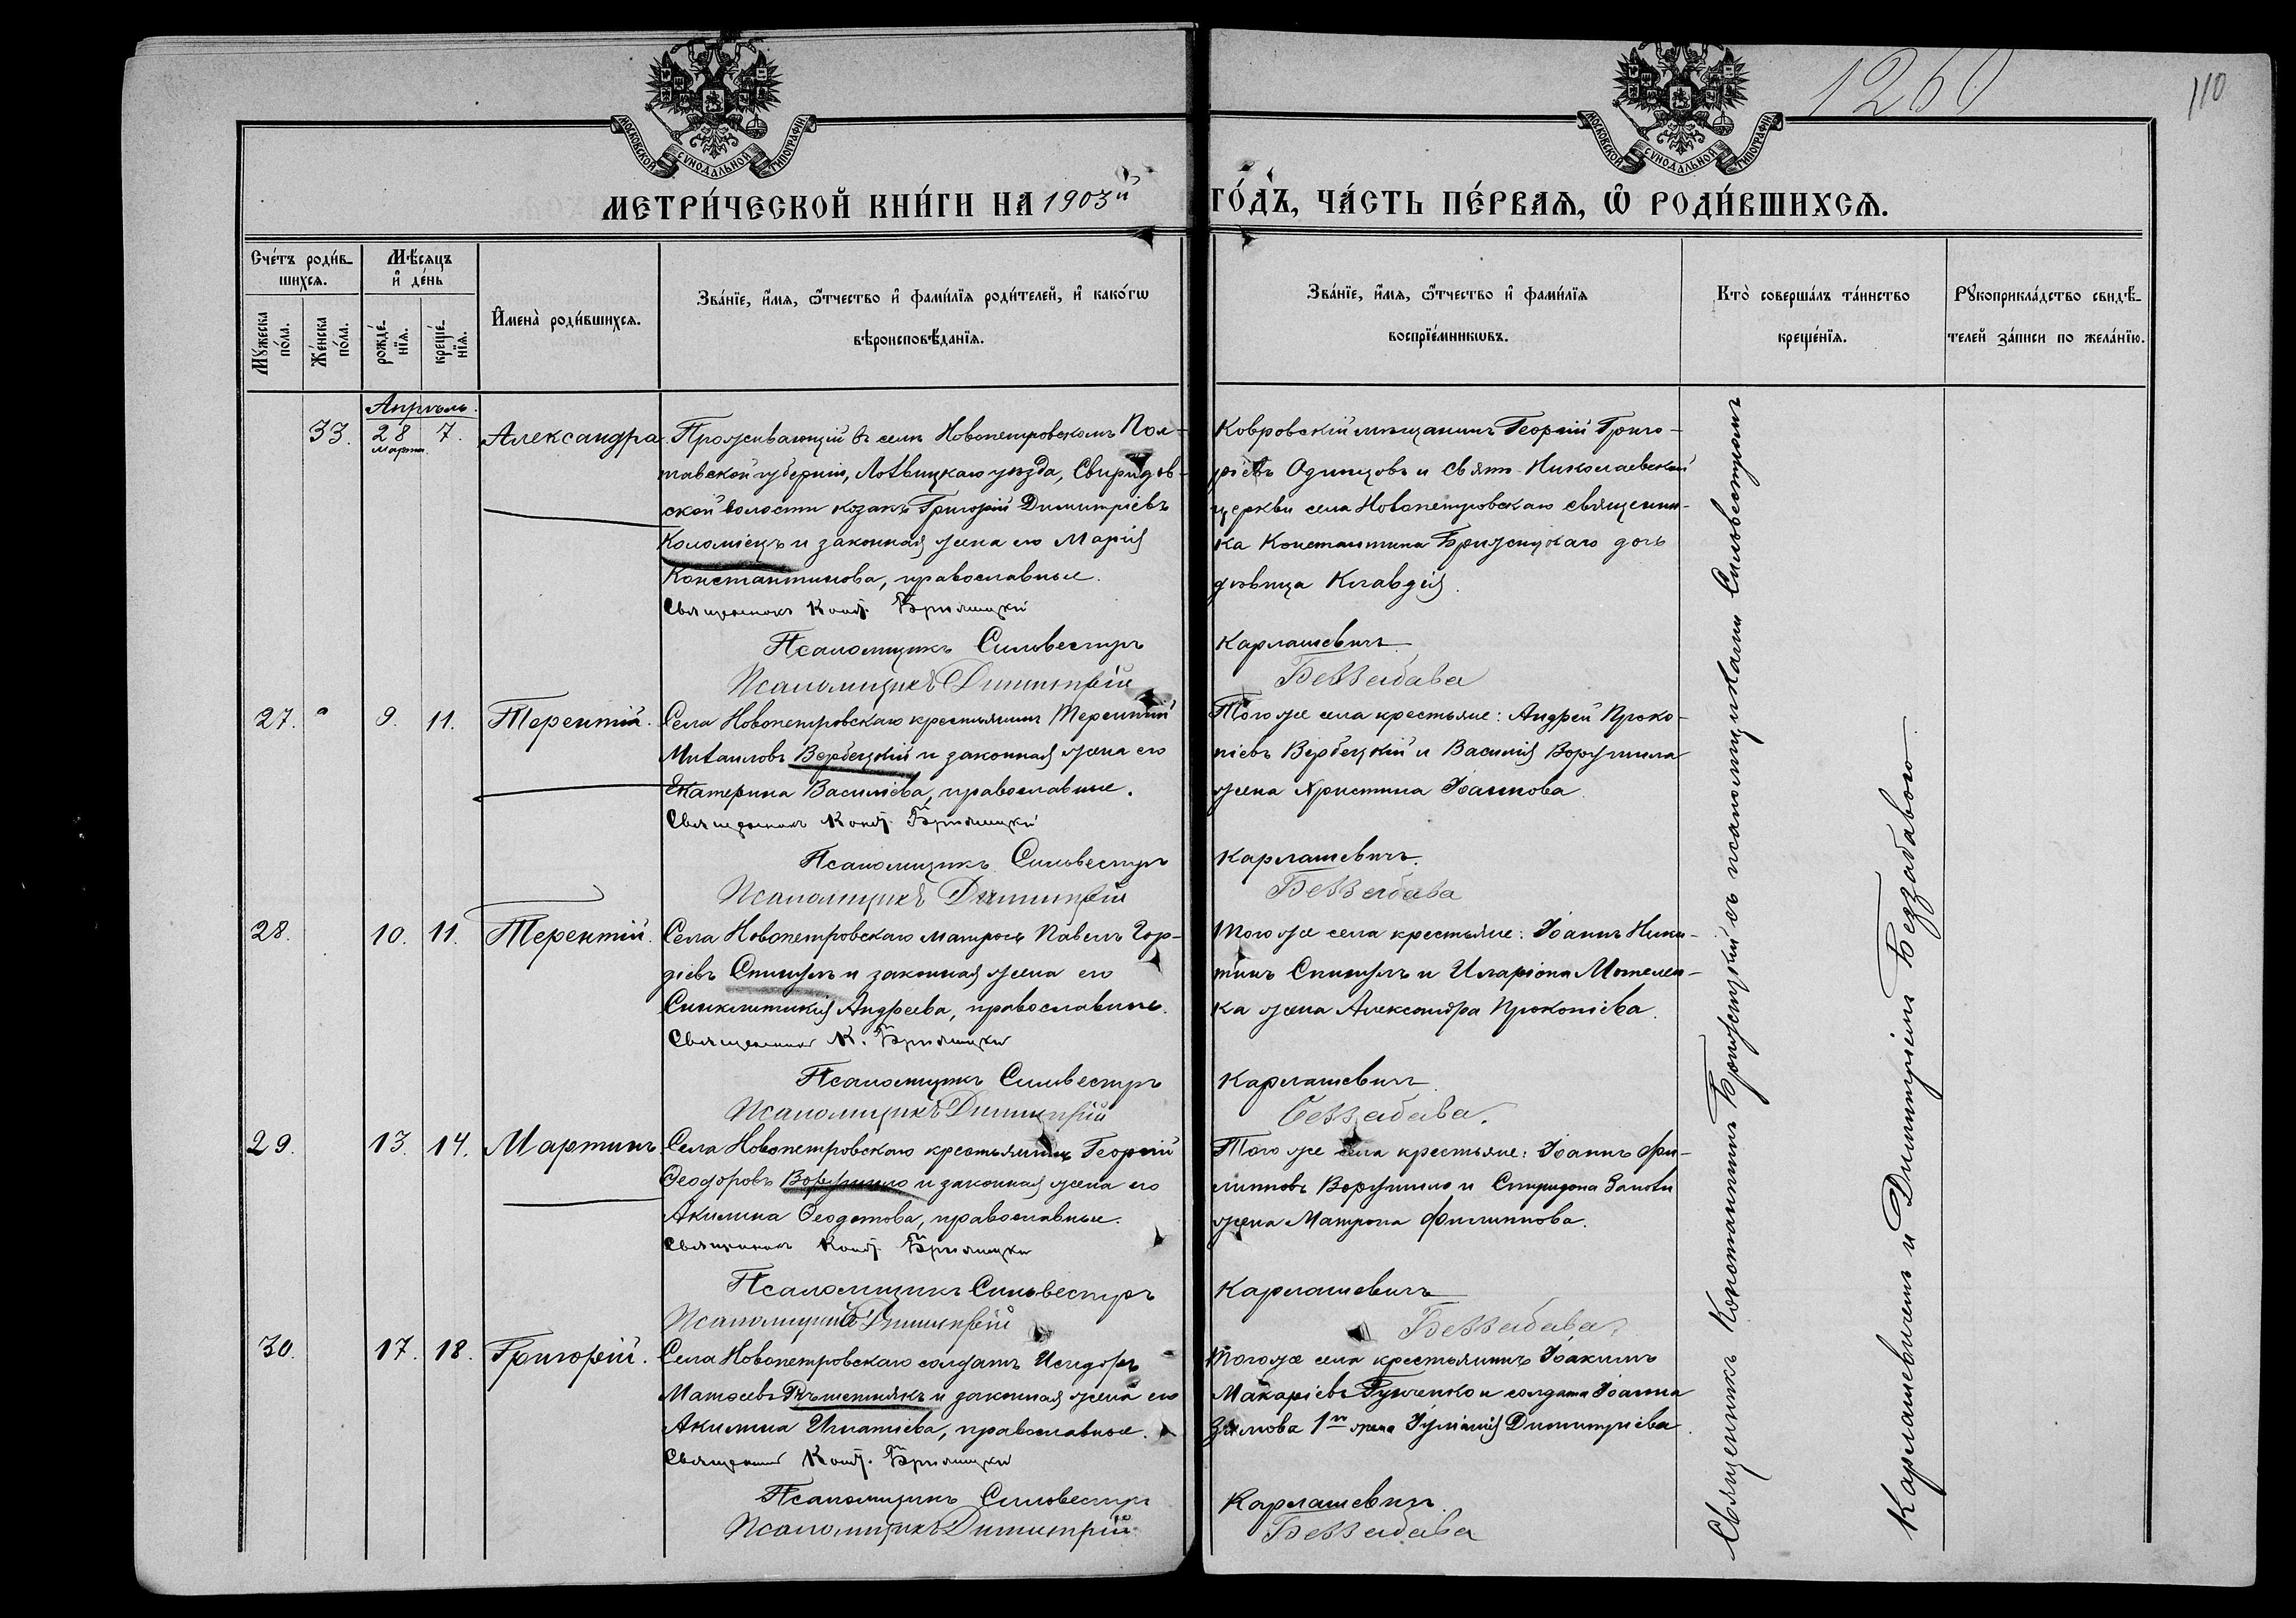 1260
110
МОСКОВСКОЙ СѴНОДАЛЬНОЙ ТИПОГРАФІИ
МОСКОВСКОЙ СѴНОДАЛЬНОЙ ТИПОГРАФІИ
МЕТРИ́ЧЕСКОЙ КНИ́ГИ НА 1903й ГО́ДЪ, ЧА́СТЬ ПЕ́РВАѦ, Ѡ РОДИ́ВШИХСѦ.
Сче́тъ роди́в-
шихсѧ.
Мѣ́сѧцъ
и҆ де́нь
Мꙋ́жеска
по́ла.
Же́нска
по́ла.
рожде́-
нїѧ.
креще́-
нїѧ.
И҆мена̀ роди́вшихсѧ.
Зва́нїе, и҆́мѧ, ѻ҆́тчество и҆ фами́лїѧ роди́телей, и҆ како́гѡ
вѣроисповѣ́данїѧ.
Зва́нїе, и҆́мѧ, ѻ҆́тчество и҆ фами́лїѧ
воспрїе́мникѡвъ.
Кто̀ соверша́лъ та́инство
креще́нїѧ.
Рꙋкоприкла́дство свидѣ́-
телей за́писи по жела́нїю.
Апрѣль.
33. 28 марта 7. Александра
Проживающій въ селѣ Новопетровскомъ Пол-
тавской губерніи, Лохвицкаго уѣзда, Свиридов-
ской волости козакъ Григорій Димитріевъ
Коломіецъ и законная жена его Марія
Константинова, православные.
Священникъ Конст. Бржесицкій
Псаломщикъ Сильвестръ
Псаломщикъ Димитрій
Ковровскій мѣщанинъ Георгій Григо-
ріевъ Одинцовъ и Свято-Николаевской
церкви села Новопетровскаго священни-
ка Константина Бржесицкаго дочь
дѣвица Клавдія.
Карлашевичъ
Беззабава
27. 9. 11. Терентій.
Села Новопетровскаго крестьянинъ Терентій
Михаиловъ Вербецкій и законная жена его
Екатерина Василіева, православные.
Священникъ Конст. Бржесицкій
Псаломщикъ Сильвестръ
Псаломщикъ Димитрій
Того же села крестьяне: Андрей Проко-
піевъ Вербецкій и Василія Воружила
жена Христина Іоаннова.
Карлашевичъ.
Беззабава
28. 10. 11. Терентій.
Села Новопетровскаго матросъ Павелъ Гор-
діевъ Спижулъ и законная жена его
Синклитикія Андреева, православные.
Священникъ К. Бржесицкій
Псаломщикъ Сильвестръ
Псаломщикъ Димитрій
Того же села крестьяне: Іоаннъ Ники-
тинъ Спижулъ и Иларіона Мотелен-
ка жена Александра Прокопіева.
Карлашевичъ
Беззабава.
29. 13. 14. Мартинъ
Села Новопетровскаго крестьянинъ Георгій
Ѳеодоровъ Воружило и законная жена его
Акилина Ѳеодотова, православные.
Священникъ Конст. Бржесицкій
Псаломщикъ Сильвестръ
Псаломщикъ Димитрій
Того же села крестьяне: Іоаннъ Фи-
липповъ Воружило и Спиридона
жена Матрона Филиппова.
Карлашевичъ
Беззабава.
30. 17. 18. Григорій.
Села Новопетровскаго солдатъ Исидоръ
Матѳеевъ Рѣшетнякъ и законная жена его
Акилина Игнатіева, православные.
Священникъ Конст. Бржесицкій
Псаломщикъ Сильвестръ
Псаломщикъ Димитрій
Того же села крестьянинъ Іоакимъ
Макаріевъ Гунченко и солдата Іоанна
1й жена Іуліанія Димитріева.
Карлашевичъ.
Беззабава
Священникъ Константинъ Бржесицкій съ псаломщиками Сильвестромъ
Карлашевичемъ и Димитріемъ Беззабавою.